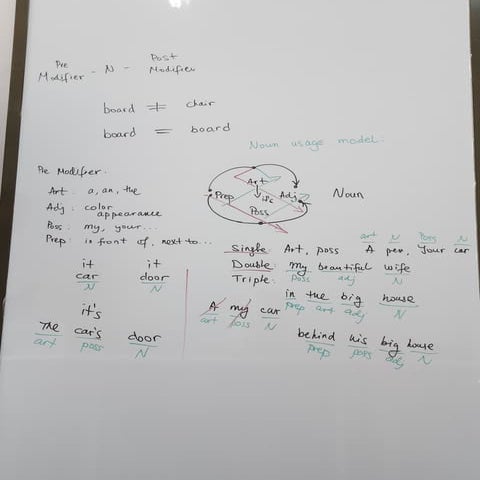 Pre Modifier - N - Post Modifier
board ≠ chair
board = board
Noun usage model.
Pre Modifier.
Art : a, an, the
Adj : color appearance
Poss : my, your...
Prep : in front of, next to...
Art
Prep
Adj
Poss
Noun
Single: Art, poss
art N Poss N
A pen, Your car
Double: my beautiful wife
poss adj N
Triple:
in the big house
prep art adj N
A my car
art poss N
behind his big house
prep poss adj N
it it
car door
N N
it's
The car's door
art poss N